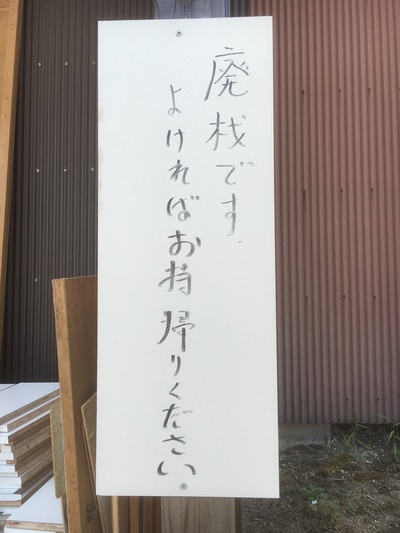 廃材です.
よければお持帰りください.